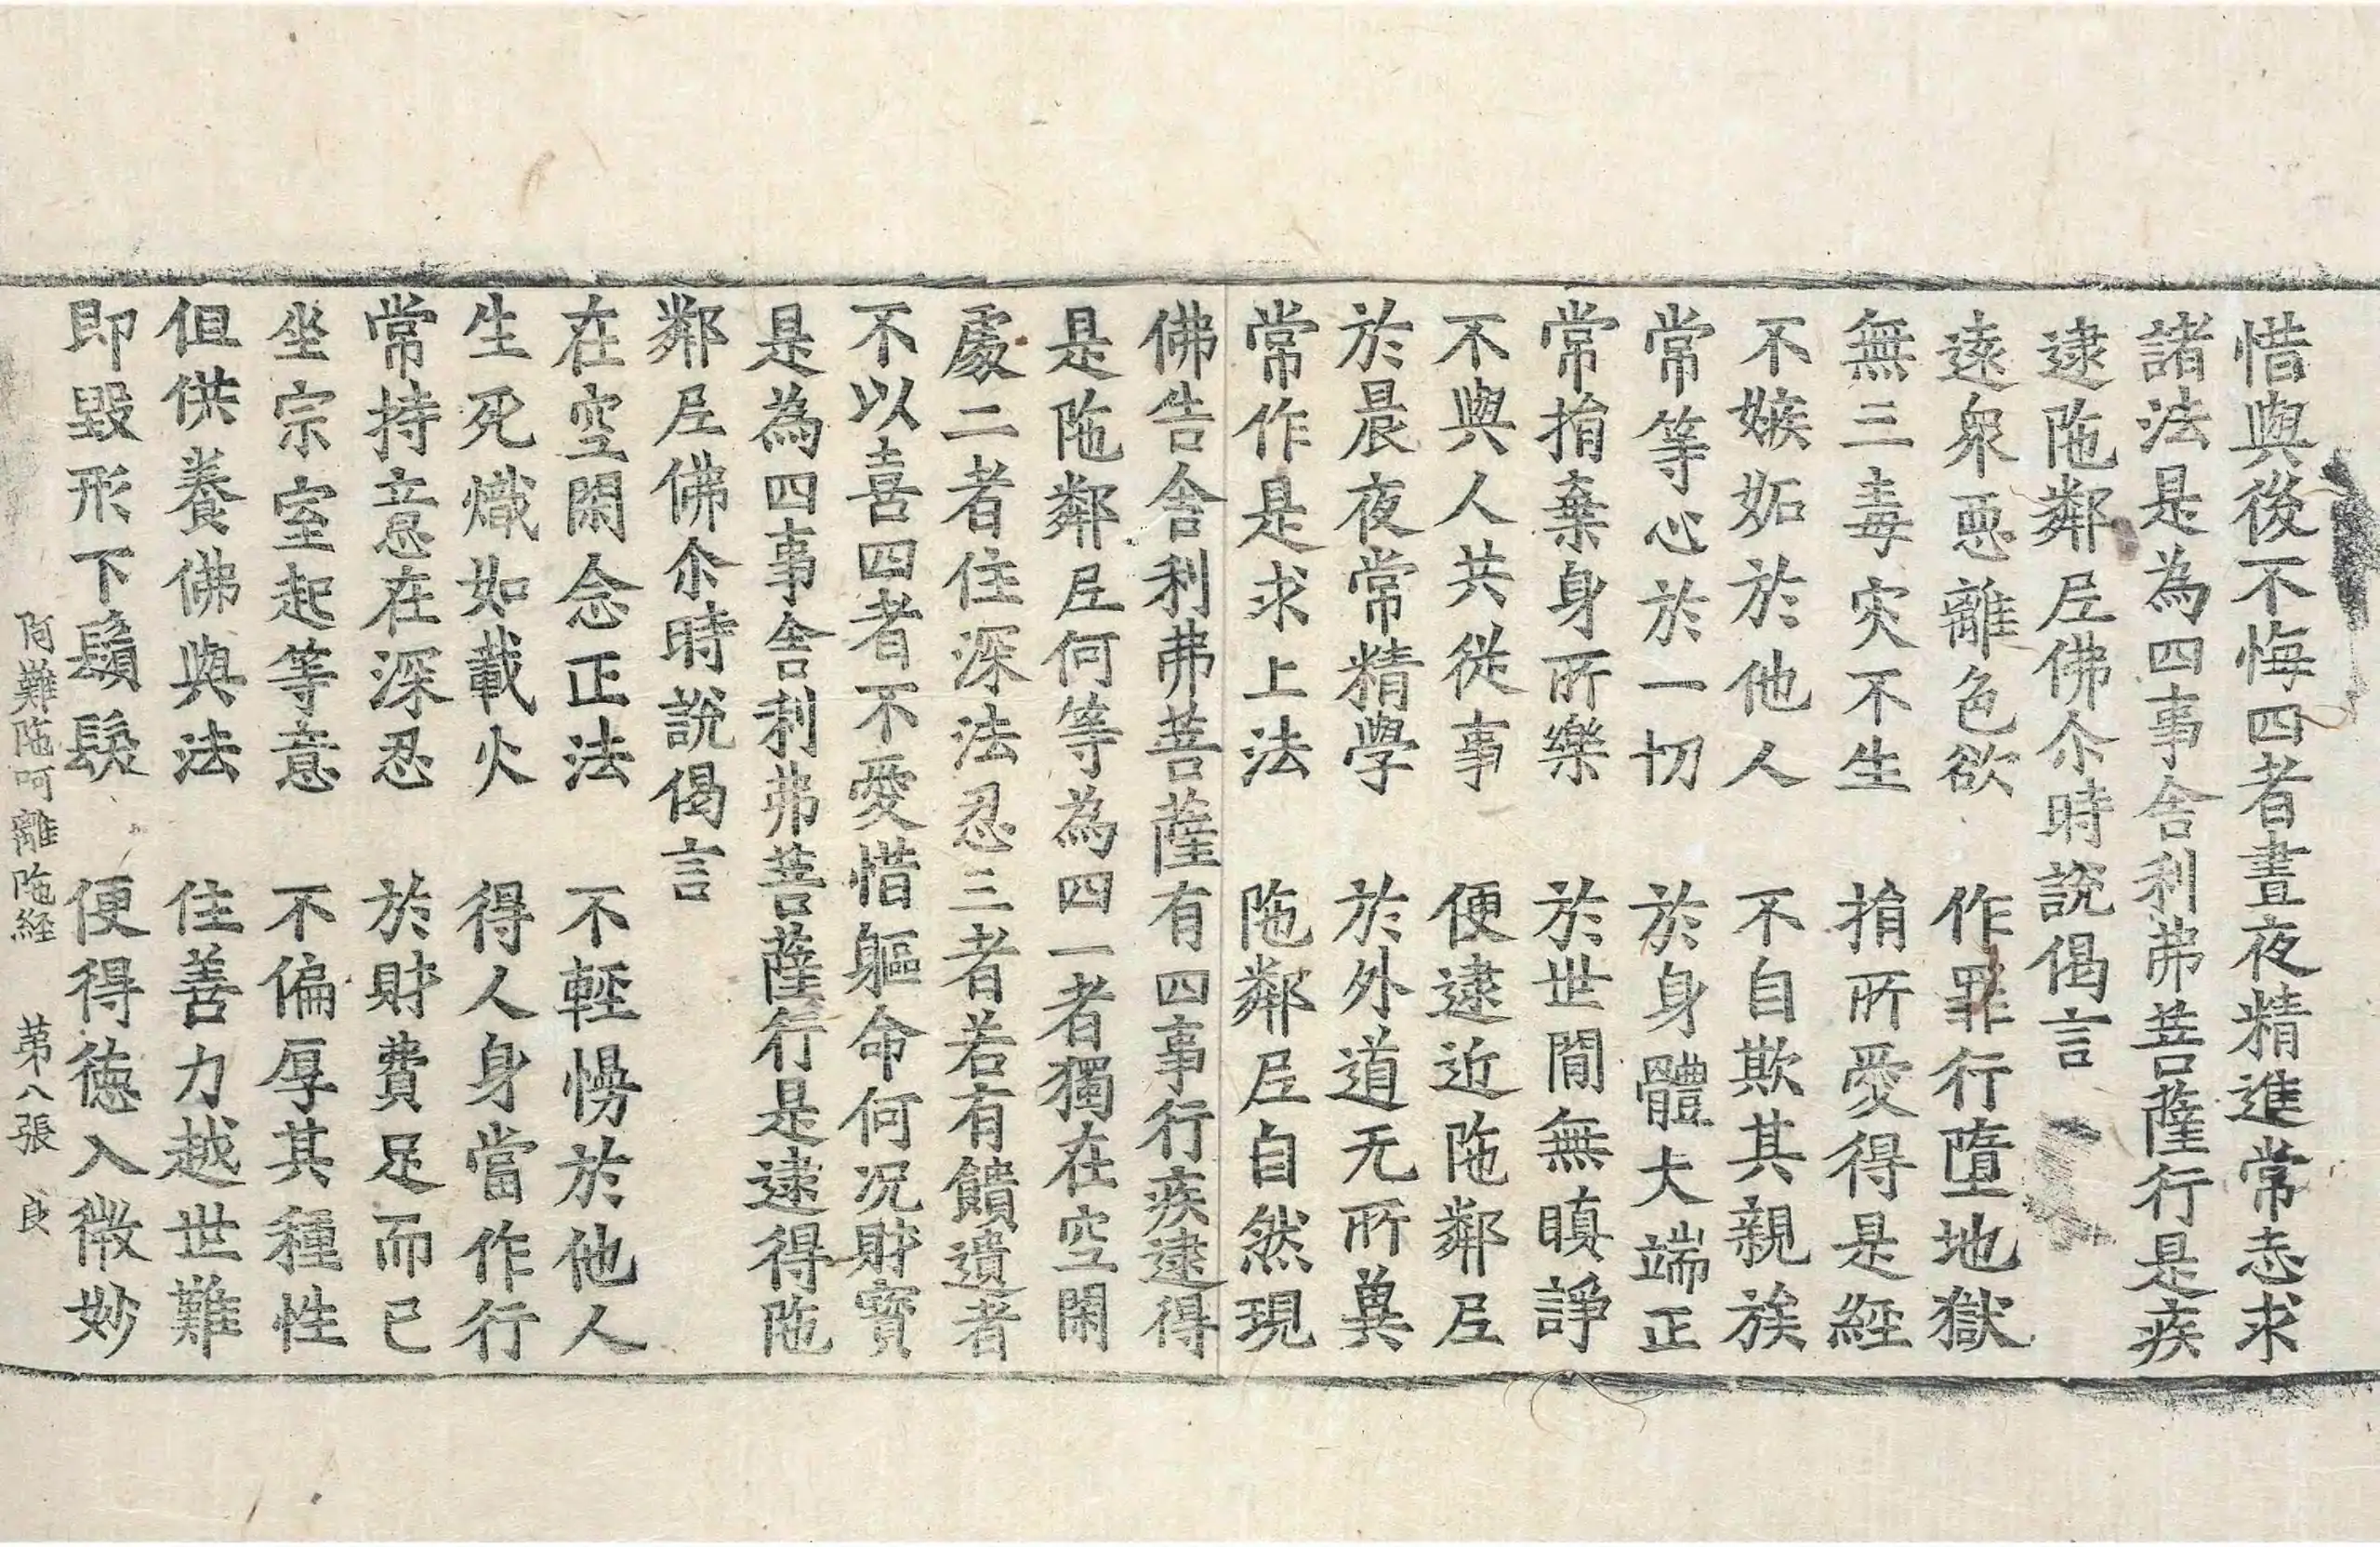 惜與後不悔四者晝夜精進常志求
諸法是為四事舍利弗菩薩行是疾
逮陁鄰𡰱佛尒時說偈言
遠衆惡離色欲　作罪行墮地獄
無三毒灾不生　捐所愛得是經
不嫉妬於他人　不自欺其親族
常等心於一切　於身體大端正
常捐棄身所樂　於世閒無瞋諍
不與人共從事　便逮近陁鄰𡰱
於晨夜常精學　於外道无所異
常作是求上法　陁鄰𡰱自然現
佛告舍利弗菩薩有四事行疾逮得
是陁鄰𡰱何等為四一者獨在空閑
處二者住深法忍三者若有饋遺者
不以喜四者不愛惜軀命何況財寶
是為四事舍利弗菩薩行是逮得陁
鄰𡰱佛尒時說偈言
在空閑念正法　不輕慢於他人
生死熾如載火　得人身當作行
常持意在深忍　於財費足而已
坐宗室起等意　不偏厚其種性
但供養佛與法　住善力越世難
即毀形下鬚髮　便得德入微妙
阿難陁呵離陁経　第八張　良